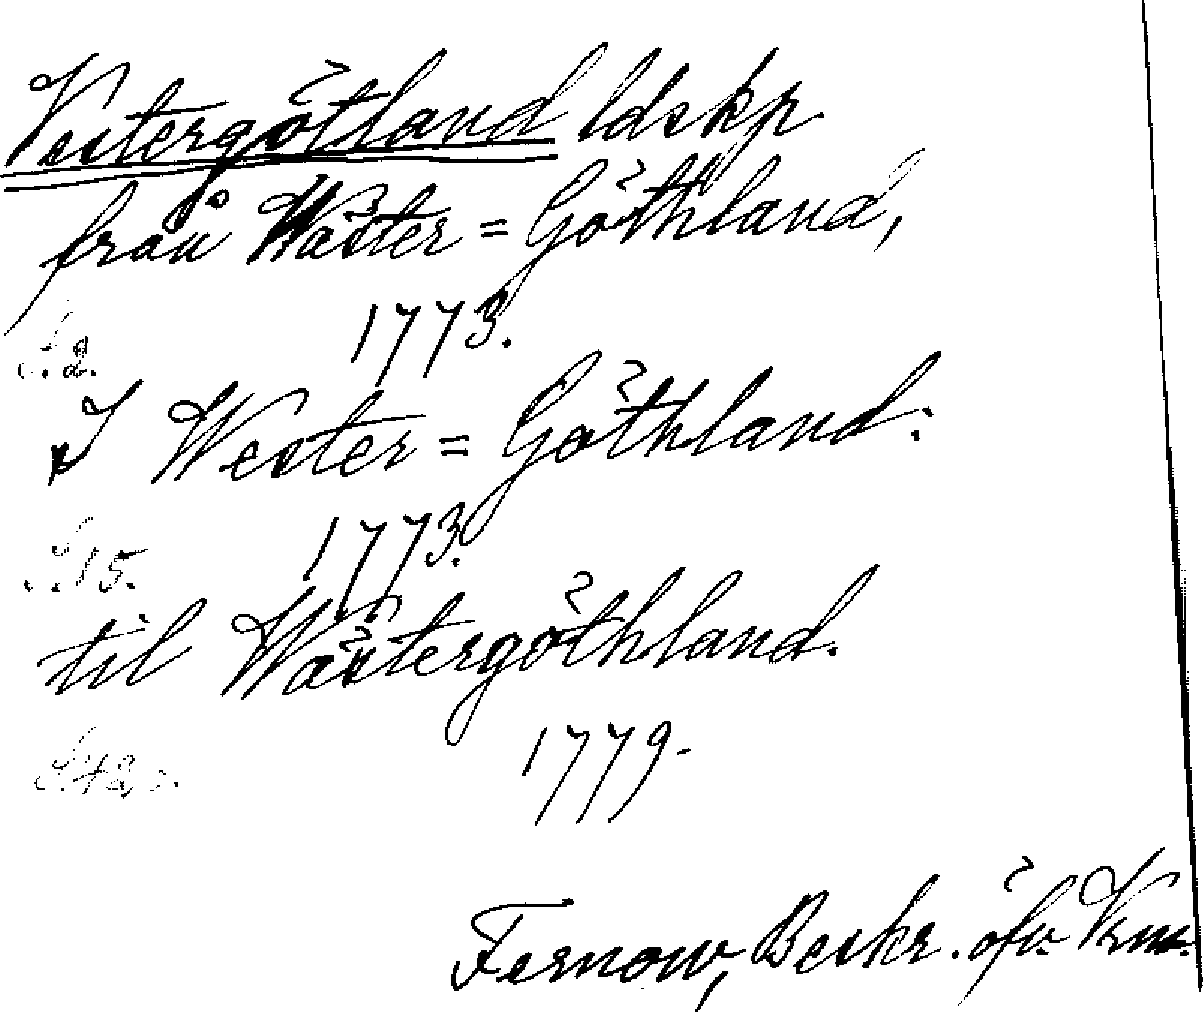 Vestergötland ldskp
från Wäster=Göthland,
S. 2. 1773.
I Wester=Göthland.
S. 15. 1773.
til Wästergöthland.
S. 42, 1779.
Fernow, Beskr. öfv. Vrm.